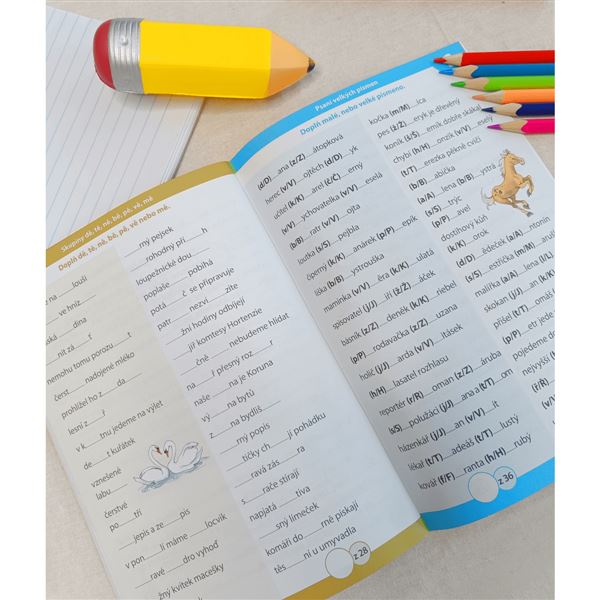 Skupiny dě, tě, ně, bě, pě, vě, mě
Doplň dě, tě, ně, bě, pě, vě nebo mě.
e na___louši
___ve hniz___
___dina
___nit zá___t
nemohu tomu porozu___t
čerst___nadojené mléko
prohlížel ho z___da___
lesní z___ř
v k___tnu jedeme na výlet
de___t kuřátek
vznešené
labu___
čerstvé
po___tří
___jepis a ze___pis
v pon___lí máme___locvik
___ravé___dro vyhoď
___žný kvítek macešky
___mý pejsek
___rohodný pří___h
loupežnické dou___
poplaše___pobíhá
potá___č se připravuje
patr___nezví___zíte
___žní hodiny odbíjejí
___jíř komtesy Hortenzie
___čně___nebudeme hlídat
na___l přesný roz___r
naše___na je Koruna
vý___na bytů
z___na bydliš___
___mý popis
___tičky ch___jí pohádku
___ravá zás___ra
s___ráče stírají
napjatá___tiva
___sný límeček
komáři do___rně pískají
těs___ní u umyvadla
z 28
Psaní velkých písmen
Doplň malé, nebo velké písmeno.
(d/D)___ana (z/Z)___átopková
herec (v/V)___ojtěch (d/D)___yk
učitel (k/K)___arel (č/Č)___erný
(v/V)___ychovatelka (v/V)___eselá
(b/B)___ratr (v/V)___ojta
loutka (s/S)___pejbla
čiperný (k/K)___anárek (p/P)___epík
liška (b/B)___ystrouška
maminka (v/V)___ěra (k/K)___ulatá
spisovatel (j/J)___iří (ž/Ž)___áček
básník (z/Z)___deněk (k/K)___riebel
(p/P)___rodavačka (v/V)___uzana
holič (j/J)___arda (v/V)___itásek
(h/H)___lasatel rozhlasu
reportér (r/R)___oman (z/Z)___áruba
(s/S)___polužáci (j/J)___ana a (t/T)___om
házenkář (j/J)___an (v/V)___ít
lékař (t/T)___adeáš (t/T)___lustý
kovář (f/F)___ranta (h/H)___rubý
kočka (m/M)___ica
pes (ž/Ž)___eryk je dřevěný
koník (š/Š)___emík dobře skákal
chybí (h/H)___onzík (v/V)___eselý
(t/T)___erezka pěkně cvičí
(b/B)___abička
(a/A)___lena (b/B)___ystrá
(s/S)___trýc
(p/P)___avel
dostihový kůň
(k/K)___orok
(d/D)___ědeček (a/A)___ntonín
(s/S)___estřička (m/M)___aruš
malířka (a/A)___lena (l/L)
skokan (j/J)___an (k/K)
přítel (t/T)___omáš
(p/P)___etr jede
pojedeme do
nejvyšší (h/H)
(ř/Ř)
z 36